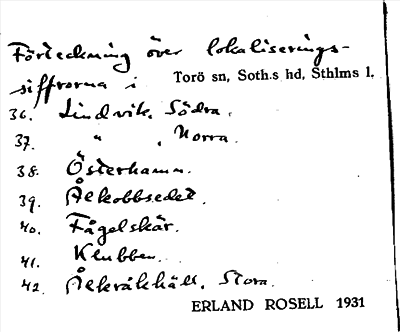 Förteckning över lokaliserings-
siffrorna i Torö sn, Soth.s hd, Sthlms l.
36. Lindvik, Södra.
37. " , Norra.
38. Österhamn.
39. Ålkobbsedet.
40. Fågelskär.
41. Klubben.
42. Ålkråkhäll, Stora.
ERLAND ROSELL 1931